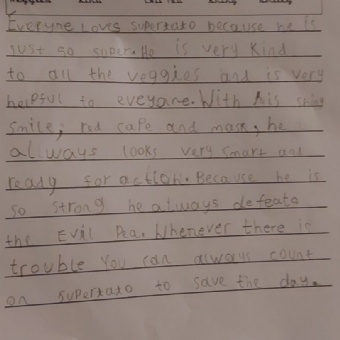 Everyone loves supertato because he is
just so super. He is very kind
to all the veggies and is very
helpful to eveyone. With his
smile, red cape and mask, he
always looks very smart and
ready for action. Because he is
so strong he always defeats
the Evil Pea. Whenever there is
trouble you can always count
on supertato to save the day.